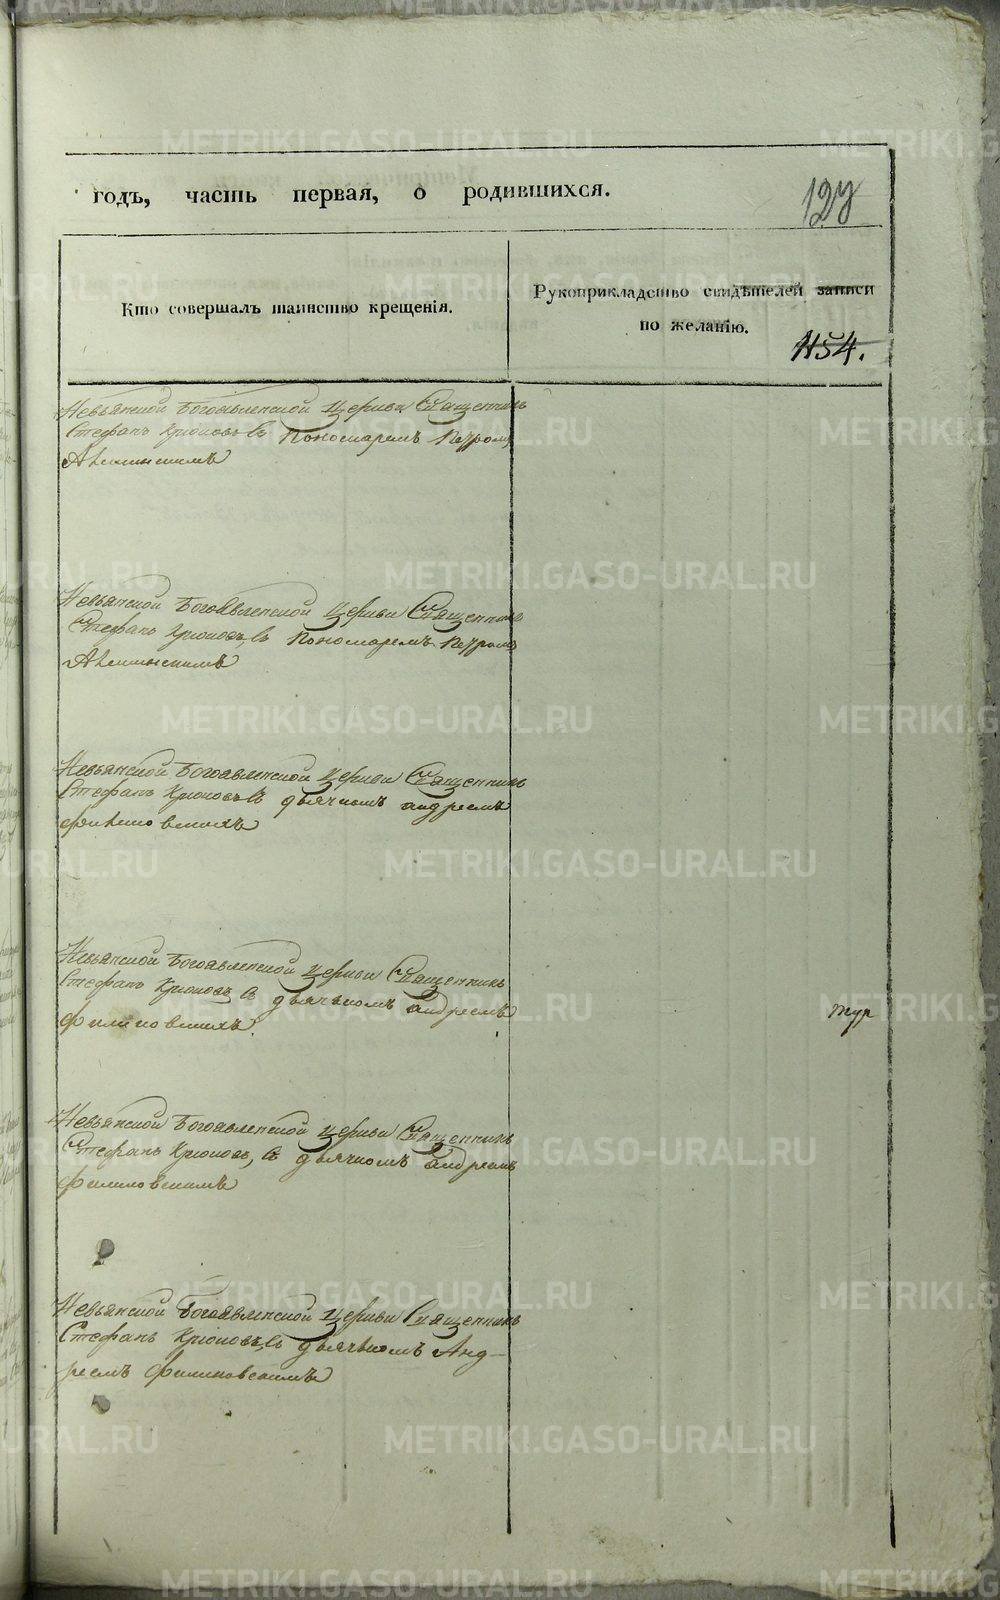 годъ, часть первая, о родившихся.
Кто совершалъ таинство крещенія.
Рукоприкладство свидѣтелей записи
по желанію.
1154.
Невьянской Богоявленской Церкви Священникъ
Стефанъ Крюковъ съ Пономаремъ Петромъ
Невьянской Богоявленской Церкви Священникъ
Стефанъ Крюковъ, съ Пономаремъ Петромъ
Невьянской Богоявленской Церкви Священникъ
Стефанъ Крюковъ съ дьячкомъ андреемъ
Невьянской Богоявленской Церкви Священникъ
Стефанъ Крюковъ съ дьячькомъ андреемъ
Филиповскимъ
Невьянской Богоявленской Церкви Священникъ
Стефанъ Крюковъ, съ дьячкомъ андреемъ
филиповскимъ
Невьянской Богоявленской Церкви Священникъ
Стефанъ Крюковъ, съ дьячькомъ Анд-
реемъ Филиповскимъ
METRIKI.GASO-URAL.RU